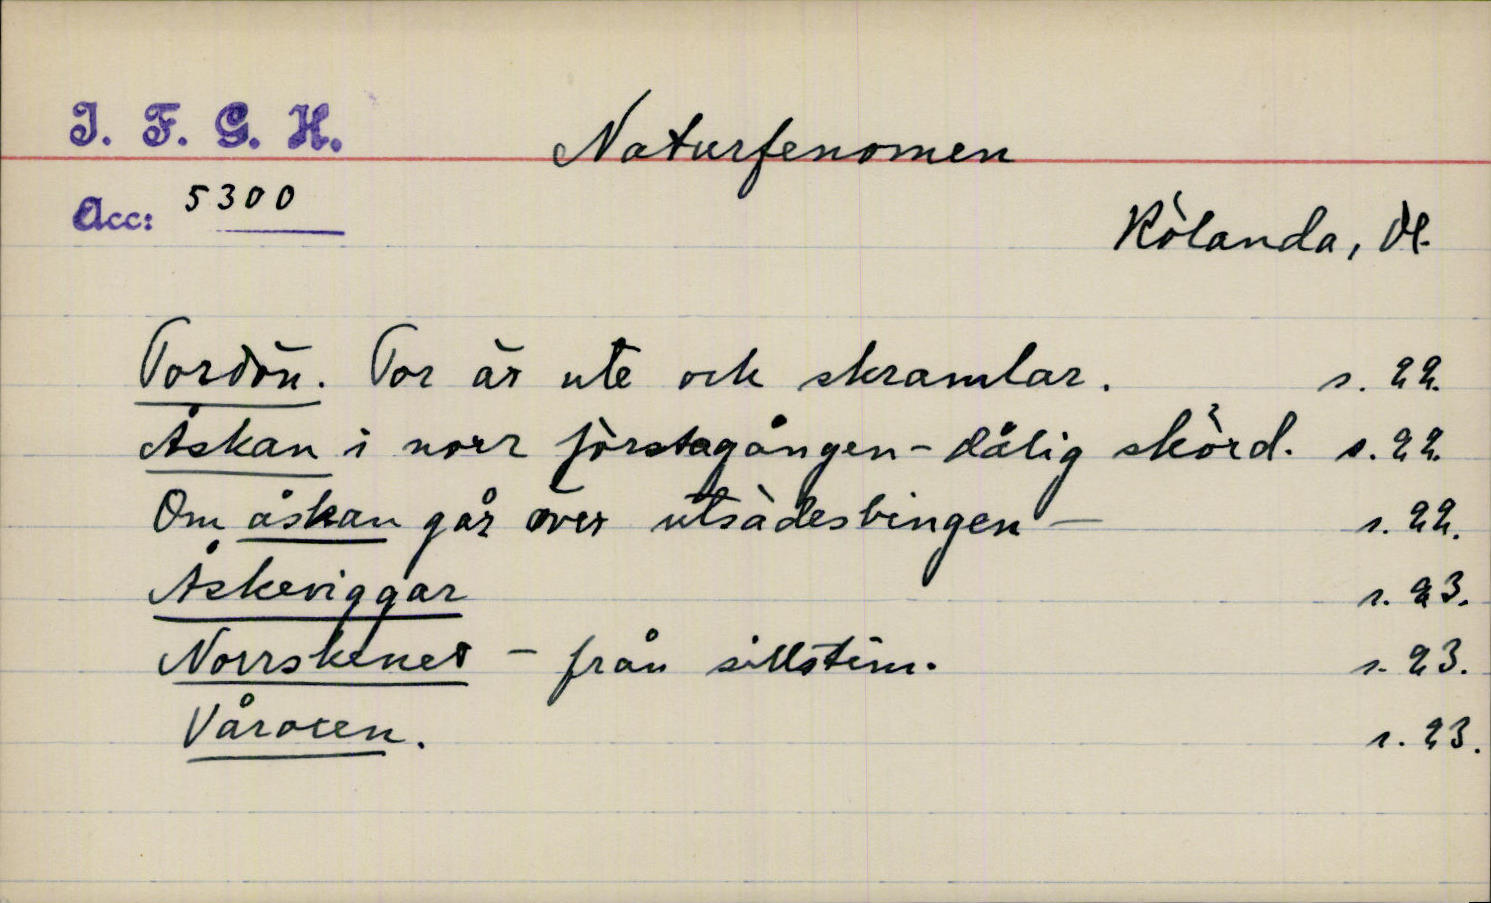 I. F. G. H.
Naturfenomen
Acc: 5300
Rölanda, Dl.
Tordön. Tor är ute och skramlar. s. 22.
Åskan i norr förstagången - dålig skörd. s. 22.
Om åskan går över utsädesbingen — s. 22.
Åskeviggar s. 23.
Norrskenet - från sillstim. s. 23.
Våroxen. s. 23.